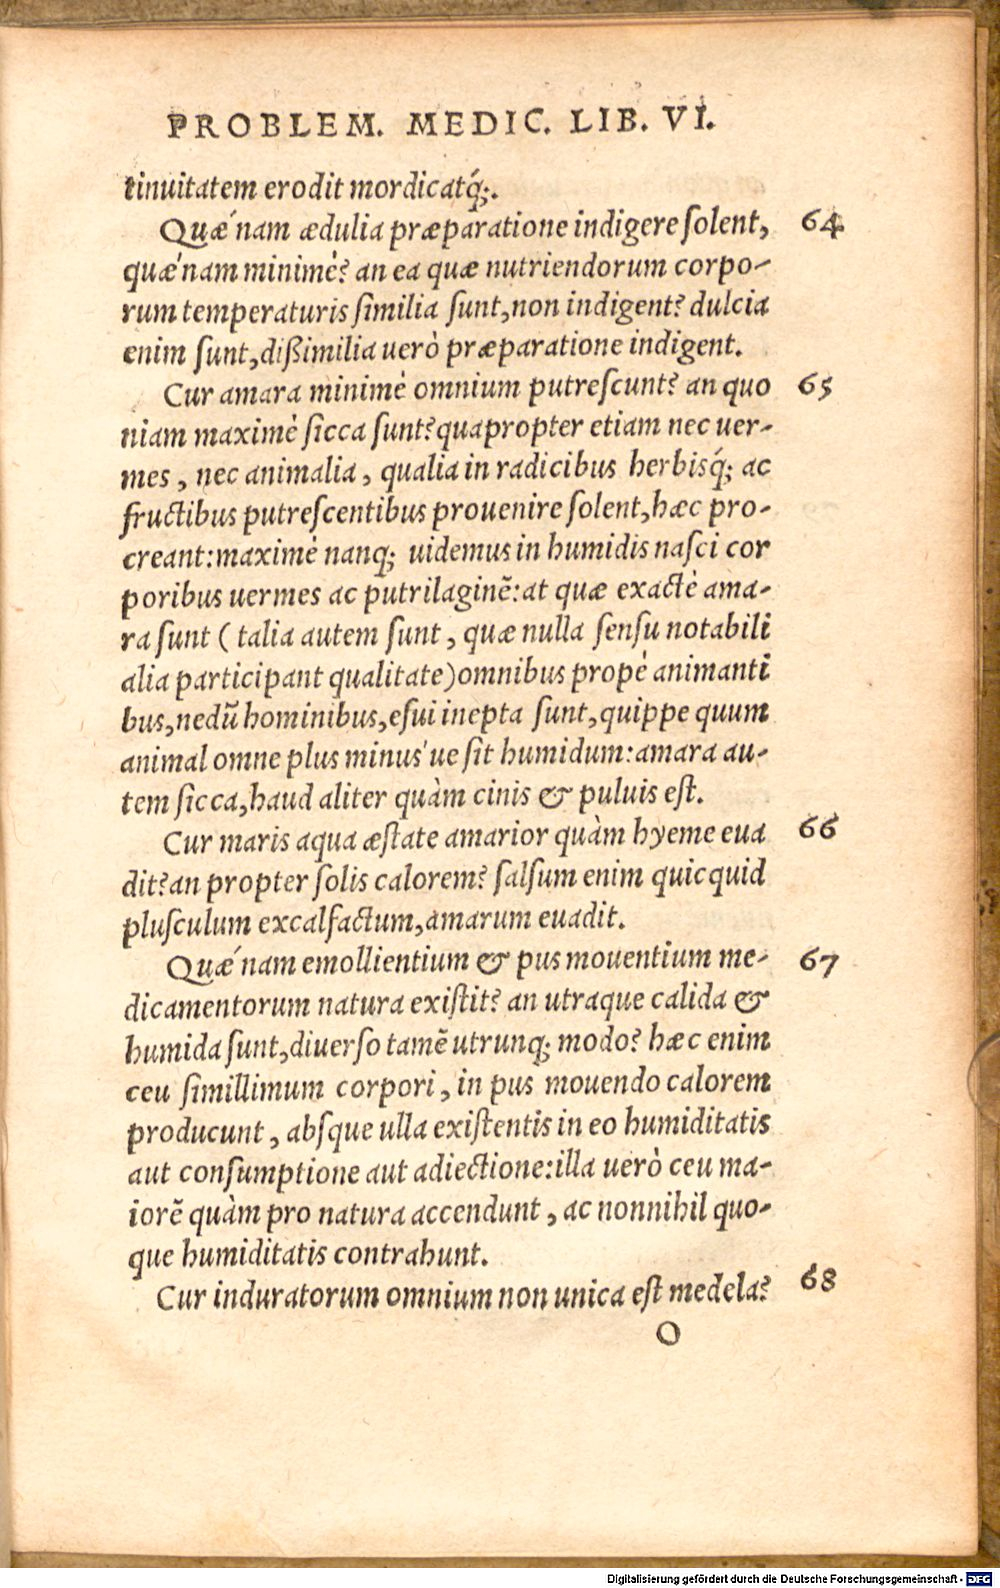 PROBLEM. MEDIC. LIB. VI.
tinuitatem erodit mordicatq́;.
Quæ´nam ædulia præparatione indigere ſolent, 64
quæ´nam minimè? an ea quæ nutriendorum corpo-
rum temperaturis ſimilia ſunt,non indigent? dulcia
enim ſunt,dißimilia uerò præparatione indigent.
Cur amara minimè omnium putreſcunt? an quo 65
niam maximè ſicca ſunt?quapropter etiam nec uer-
mes , nec animalia , qualia in radicibus herbisq́; ac
fructibus putreſcentibus prouenire ſolent,hæc pro-
creant:maximè nanq; uidemus in humidis naſci cor
poribus uermes ac putrilaginẽ:at quæ exactè ama-
ra ſunt ( talia autem ſunt , quæ nulla ſenſu notabili
alia participant qualitate)omnibus propè animanti
bus,nedũ hominibus,eſui inepta ſunt,quippe quum
animal omne plus minus´ue ſit humidum:amara au-
tem ſicca,haud aliter quàm cinis & puluis eſt.
Cur maris aqua æſtate amarior quàm hyeme eua 66
dit?an propter ſolis calorem? ſalſum enim quicquid
pluſculum excalfactum,amarum euadit.
Quæ´nam emollientium & pus mouentium me- 67
dicamentorum natura exiſtit? an utraque calida &
humida ſunt,diuerſo tamẽ utrunq; modo? hæc enim
ceu ſimillimum corpori , in pus mouendo calorem
producunt , abſque ulla exiſtentis in eo humiditatis
aut conſumptione aut adiectione:illa uerò ceu ma-
iorẽ quàm pro natura accendunt , ac nonnihil quo-
que humiditatis contrahunt.
Cur induratorum omnium non unica eſt medela? 68
O
Digitalisierung gefördert durch die Deutsche Forschungsgemeinschaft - DFG